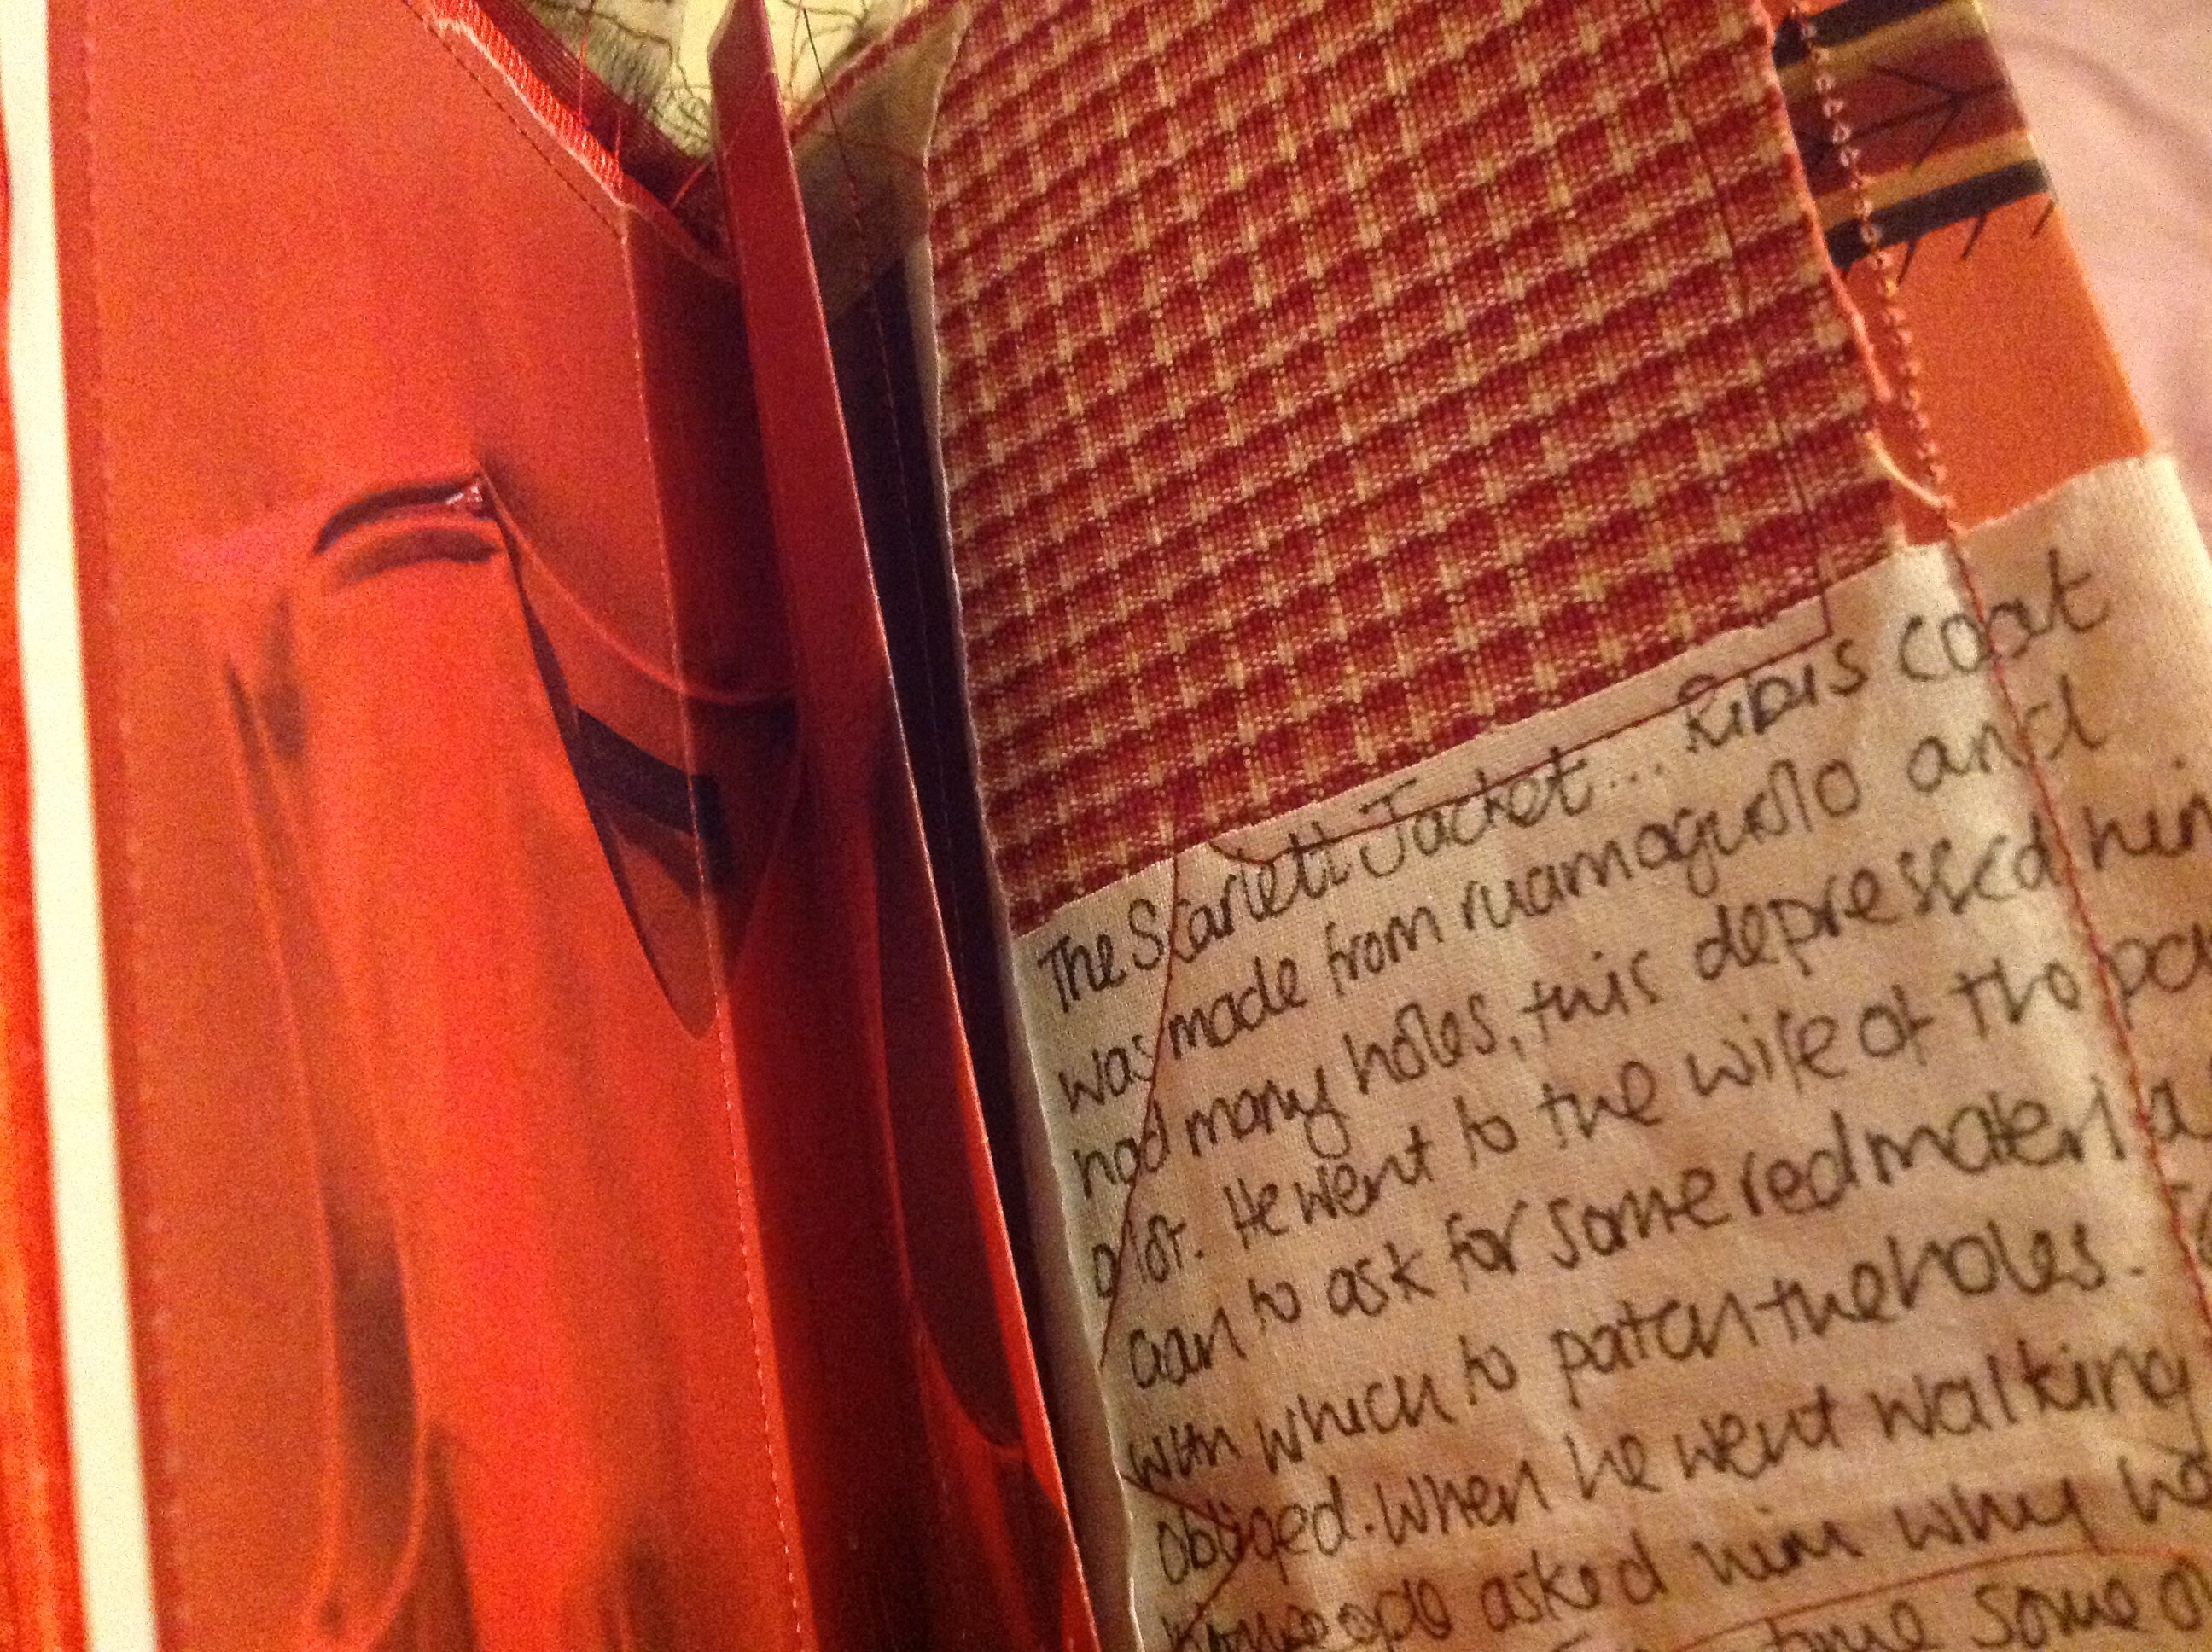 The Scarlett Jacket... Kibis coat
was made from nuamogusto and
had many holes, this depressed him
a lot. He went to the wife of the
to ask for some red material
with which to patch the holes.
obliged. When he went walking
asked him why
time some